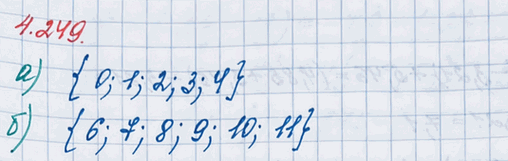 4.249.
а) { 0; 1; 2; 3; 4}
б) {6; 7; 8; 9; 10; 11}